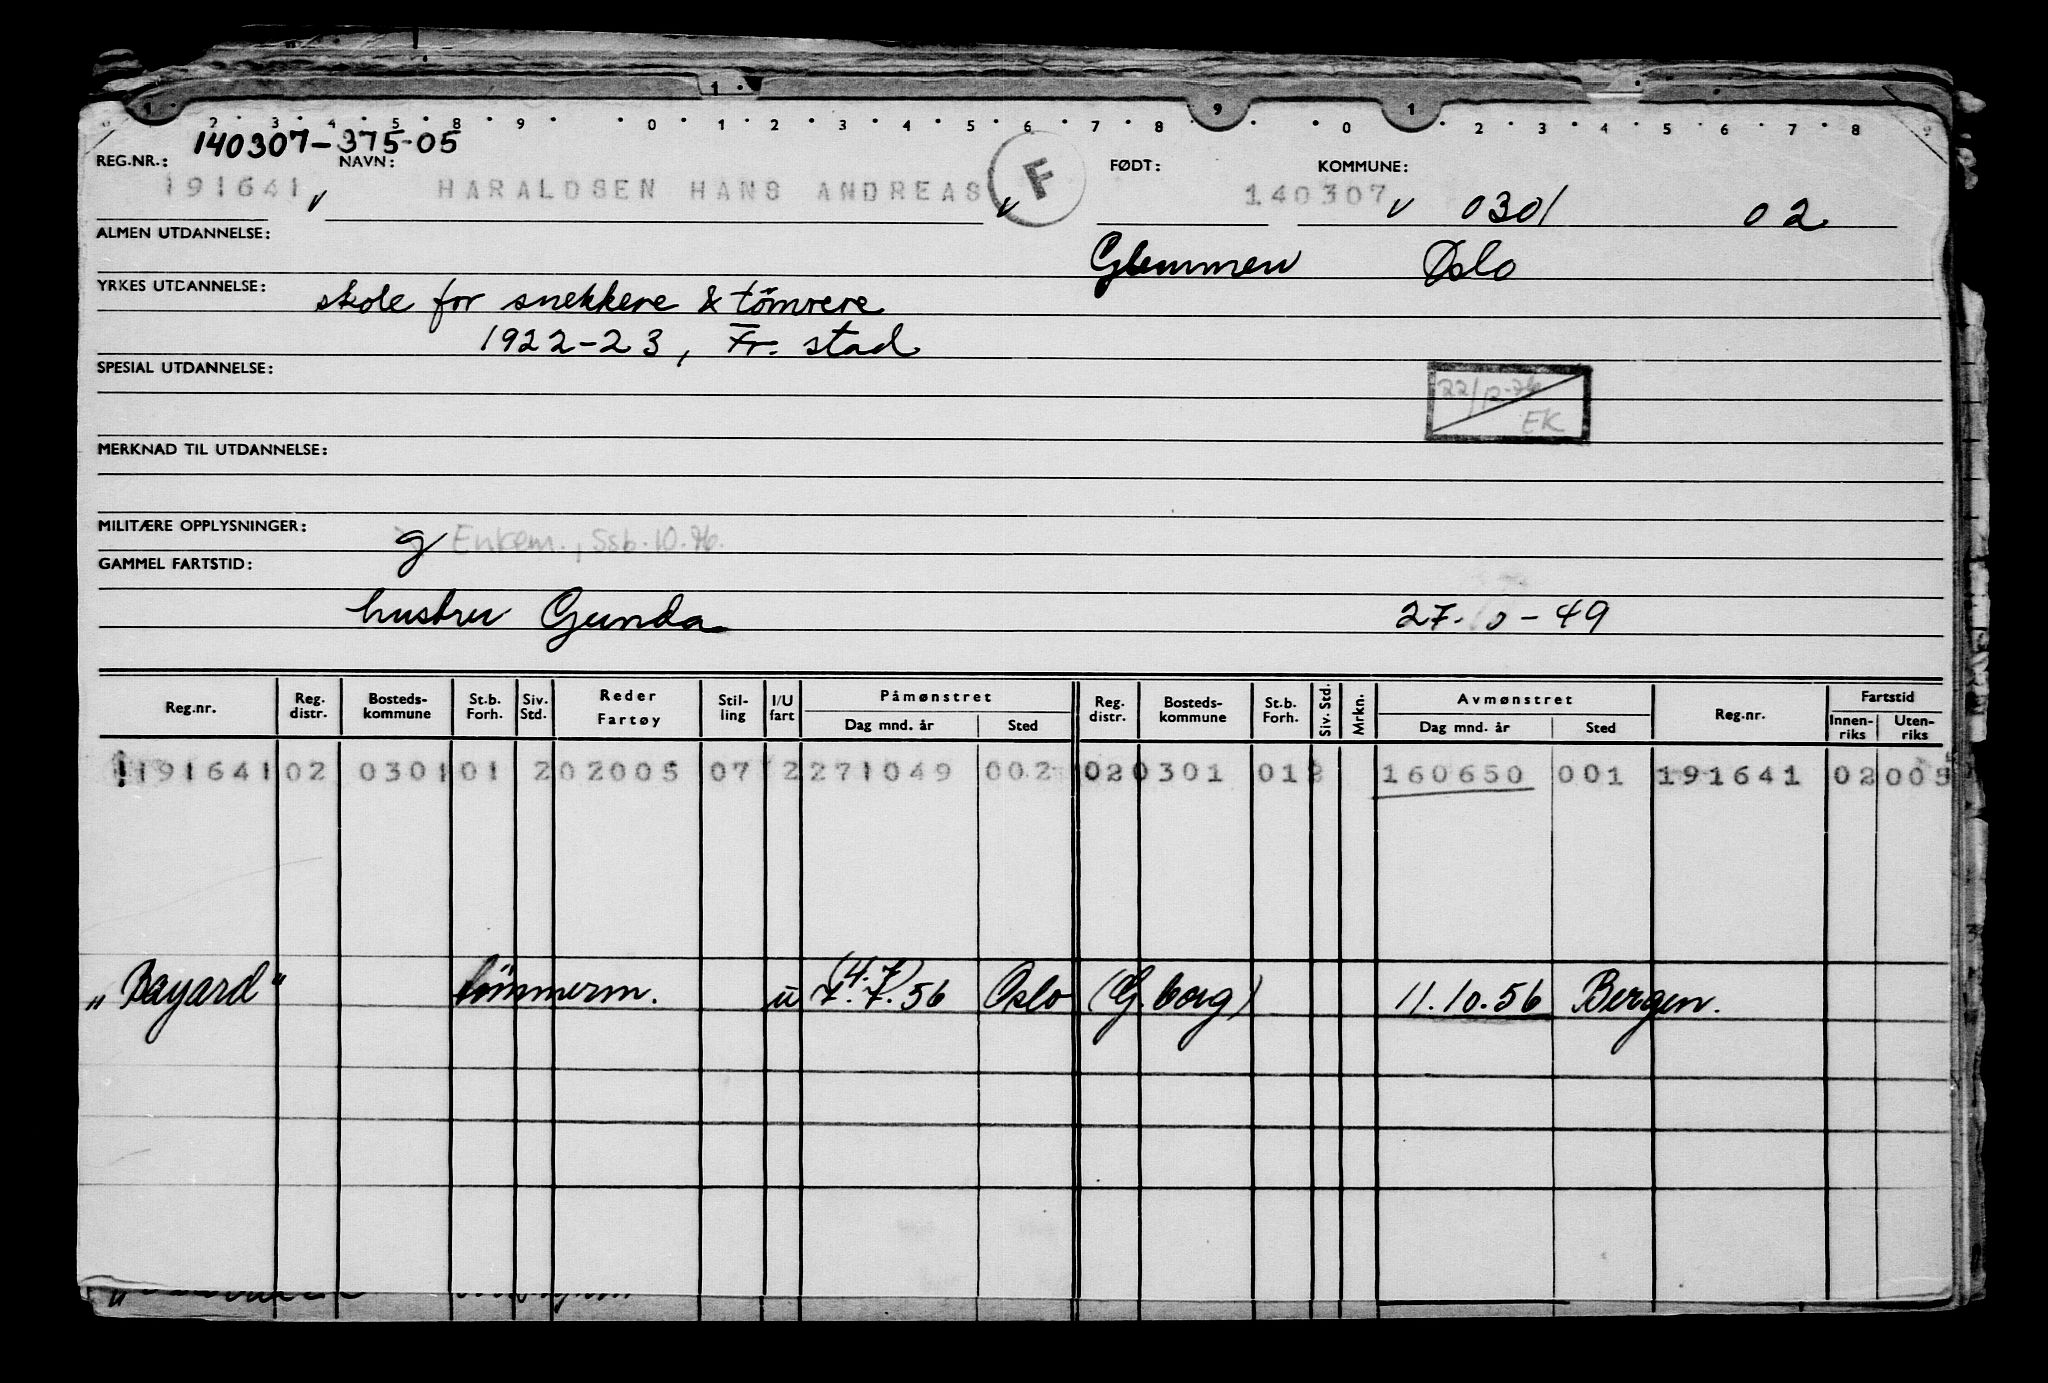 1 9 1
2 3 4 5 8 9 0 1 2 3 4 5 6 7 8 0 2 3 4 5 6 7 8
140307-375-05
REG.NR.: NAVN: F FØDT: KOMMUNE:
191641 HARALDSEN HANS ANDREAS 140307 0301 02
ALMEN UTDANNELSE: Glemmen Oslo
YRKES UTDANNELSE: skole for snekkere & tömrere
1922-23, Fr. stad
SPESIAL UTDANNELSE:
22/12-76
EK
MERKNAD TIL UTDANNELSE:
MILITÆRE OPPLYSNINGER: g Enkem., Ssb. 10.76.
GAMMEL FARTSTID:
hustru Gunda 27. -49
Reg.nr. Reg. distr. Bosteds-kommune St.b. Forh. Siv. Std. Reder Fartøy Stil-ling I/U fart Påmønstret Dag mnd. år Sted Reg. distr. Bosteds-kommune St.b. Forh. Siv. Std. Mrkn. Avmønstret Dag mnd. år Sted Reg.nr. Fartstid Innen-riks Uten-riks
191641 02 0301 01 2 02005 07 2 271049 002 02 0301 01 2 160650 001 191641 02 005
„Bayard" tömmerm. u (4.7) 7.7.56 Oslo (G.borg) 11.10.56 Bergen.